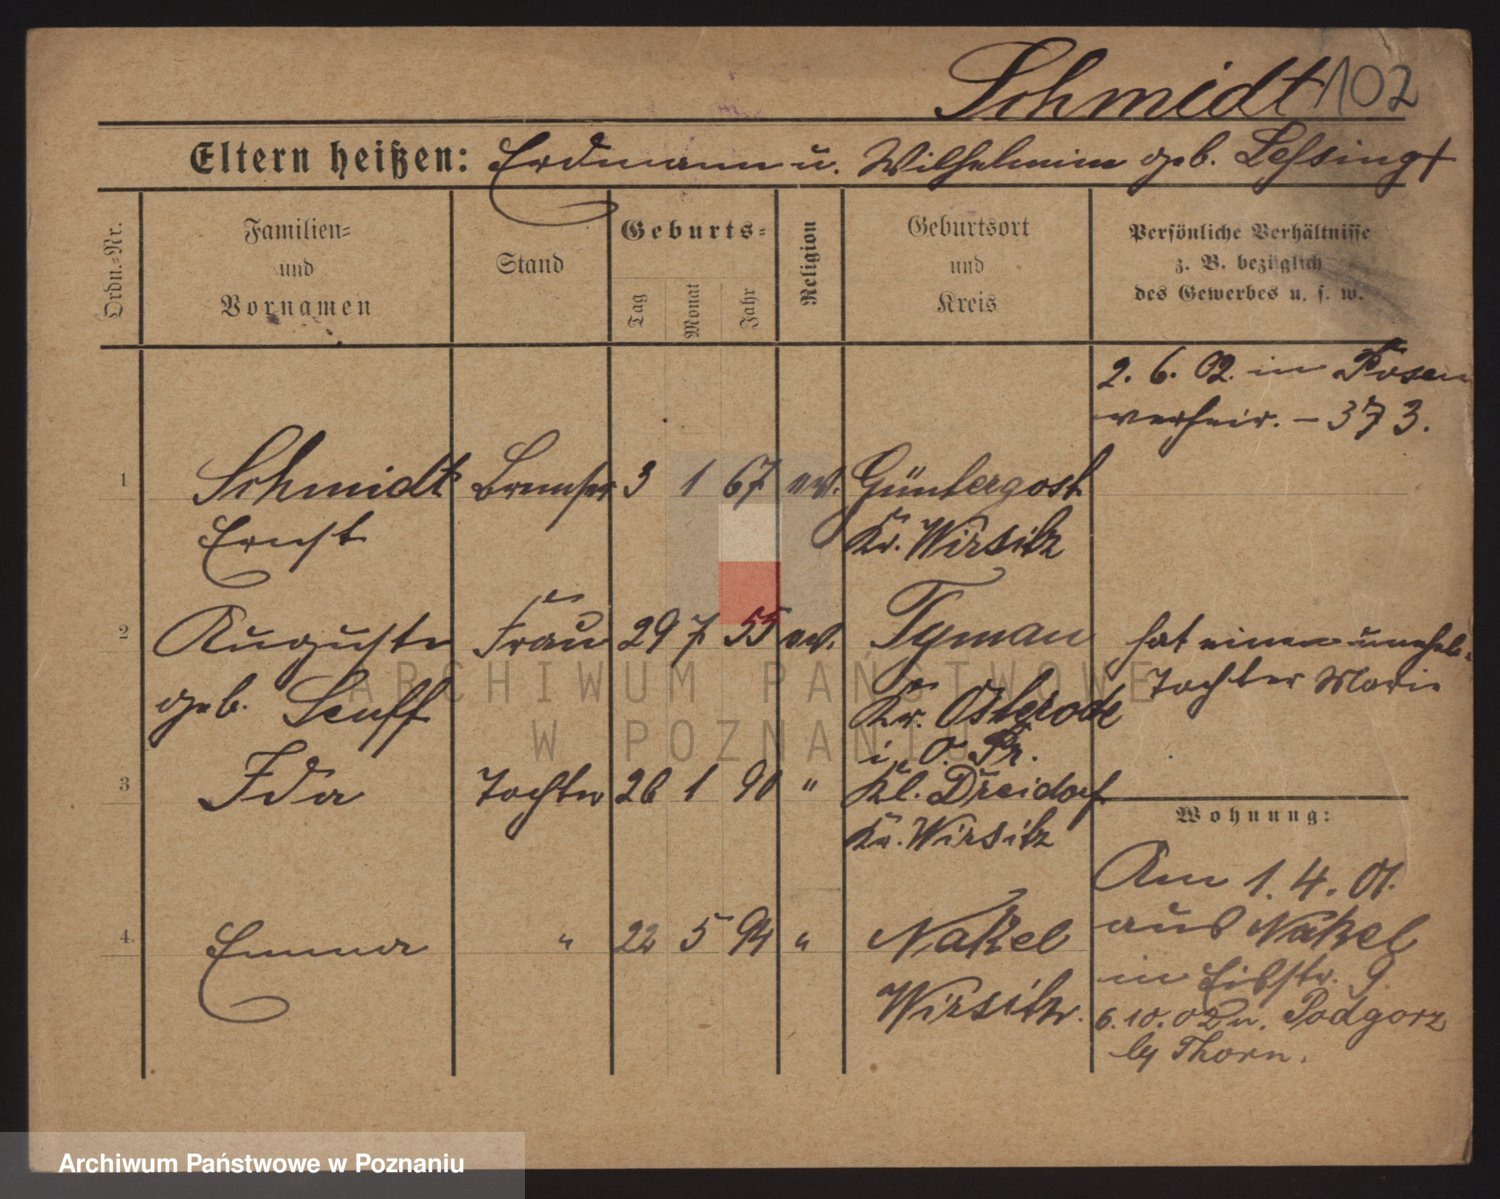 Schmidt 102
Eltern heißen: Erdmann u. Wilhelmine geb. Lessing +
Ordn.-Nr.
Familien-
und
Vornamen
Stand
Geburts-
Tag
Monat
Jahr
Religion
Geburtsort
und
Kreis
Persönliche Verhältnisse
z. B. bezüglich
des Gewerbes u. s. w.
2. 6. 02. in Posen
verheir. – 373.
1 Schmidt Bremser 3 1 67 ev. Güntergost
Ernst Kr. Wirsitz
2 Auguste Frau 29 7 55 ev. Tyrnau hat eine unehel.
geb. Senff Kr. Osterode Tochter Marie
i. O. Pr.
3 Ida Tochter 26 1 90 " Kl. Dreidorf
Kr. Wirsitz
Wohnung:
Am 1. 4. 01.
4. Emma " 22 5 94 " Nakel aus Nakel
Wirsitz. in Eibstr. 9.
6.10.02 n. Podgorz
by Thorn.
ARCHIWUM PAŃSTWOWE
W POZNANIU
Archiwum Państwowe w Poznaniu